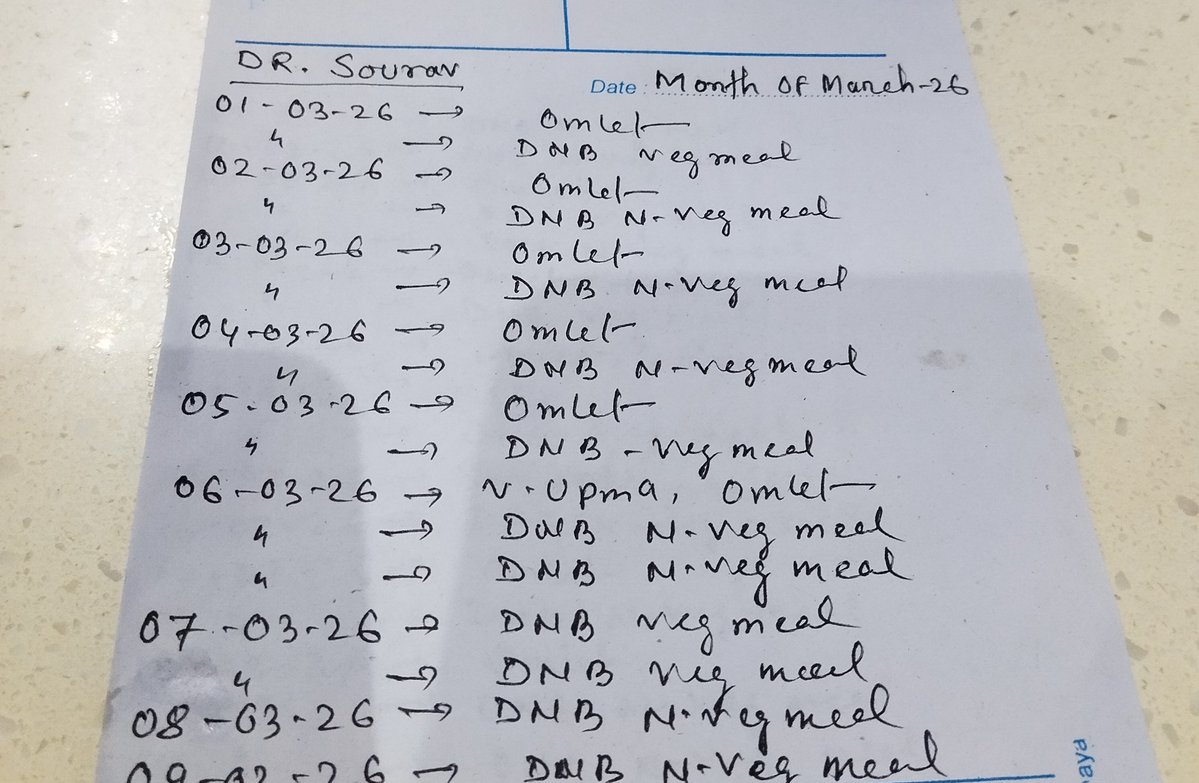 DR. Sourav
Date : Month OF March-26
01-03-26 → Omlet
" → DNB veg meal
02-03-26 → Omlet
" → DNB N-veg meal
03-03-26 → Omlet
" → DNB N-veg meal
04-03-26 → Omlet
" → DNB N-veg meal
05-03-26 → Omlet
" → DNB - veg meal
06-03-26 → V. Upma, Omlet
" → DNB N-veg meal
" → DNB N-veg meal
07-03-26 → DNB veg meal
" → DNB veg meal
08-03-26 → DNB N-veg meal
09-03-26 → DNB N-veg meal
aya